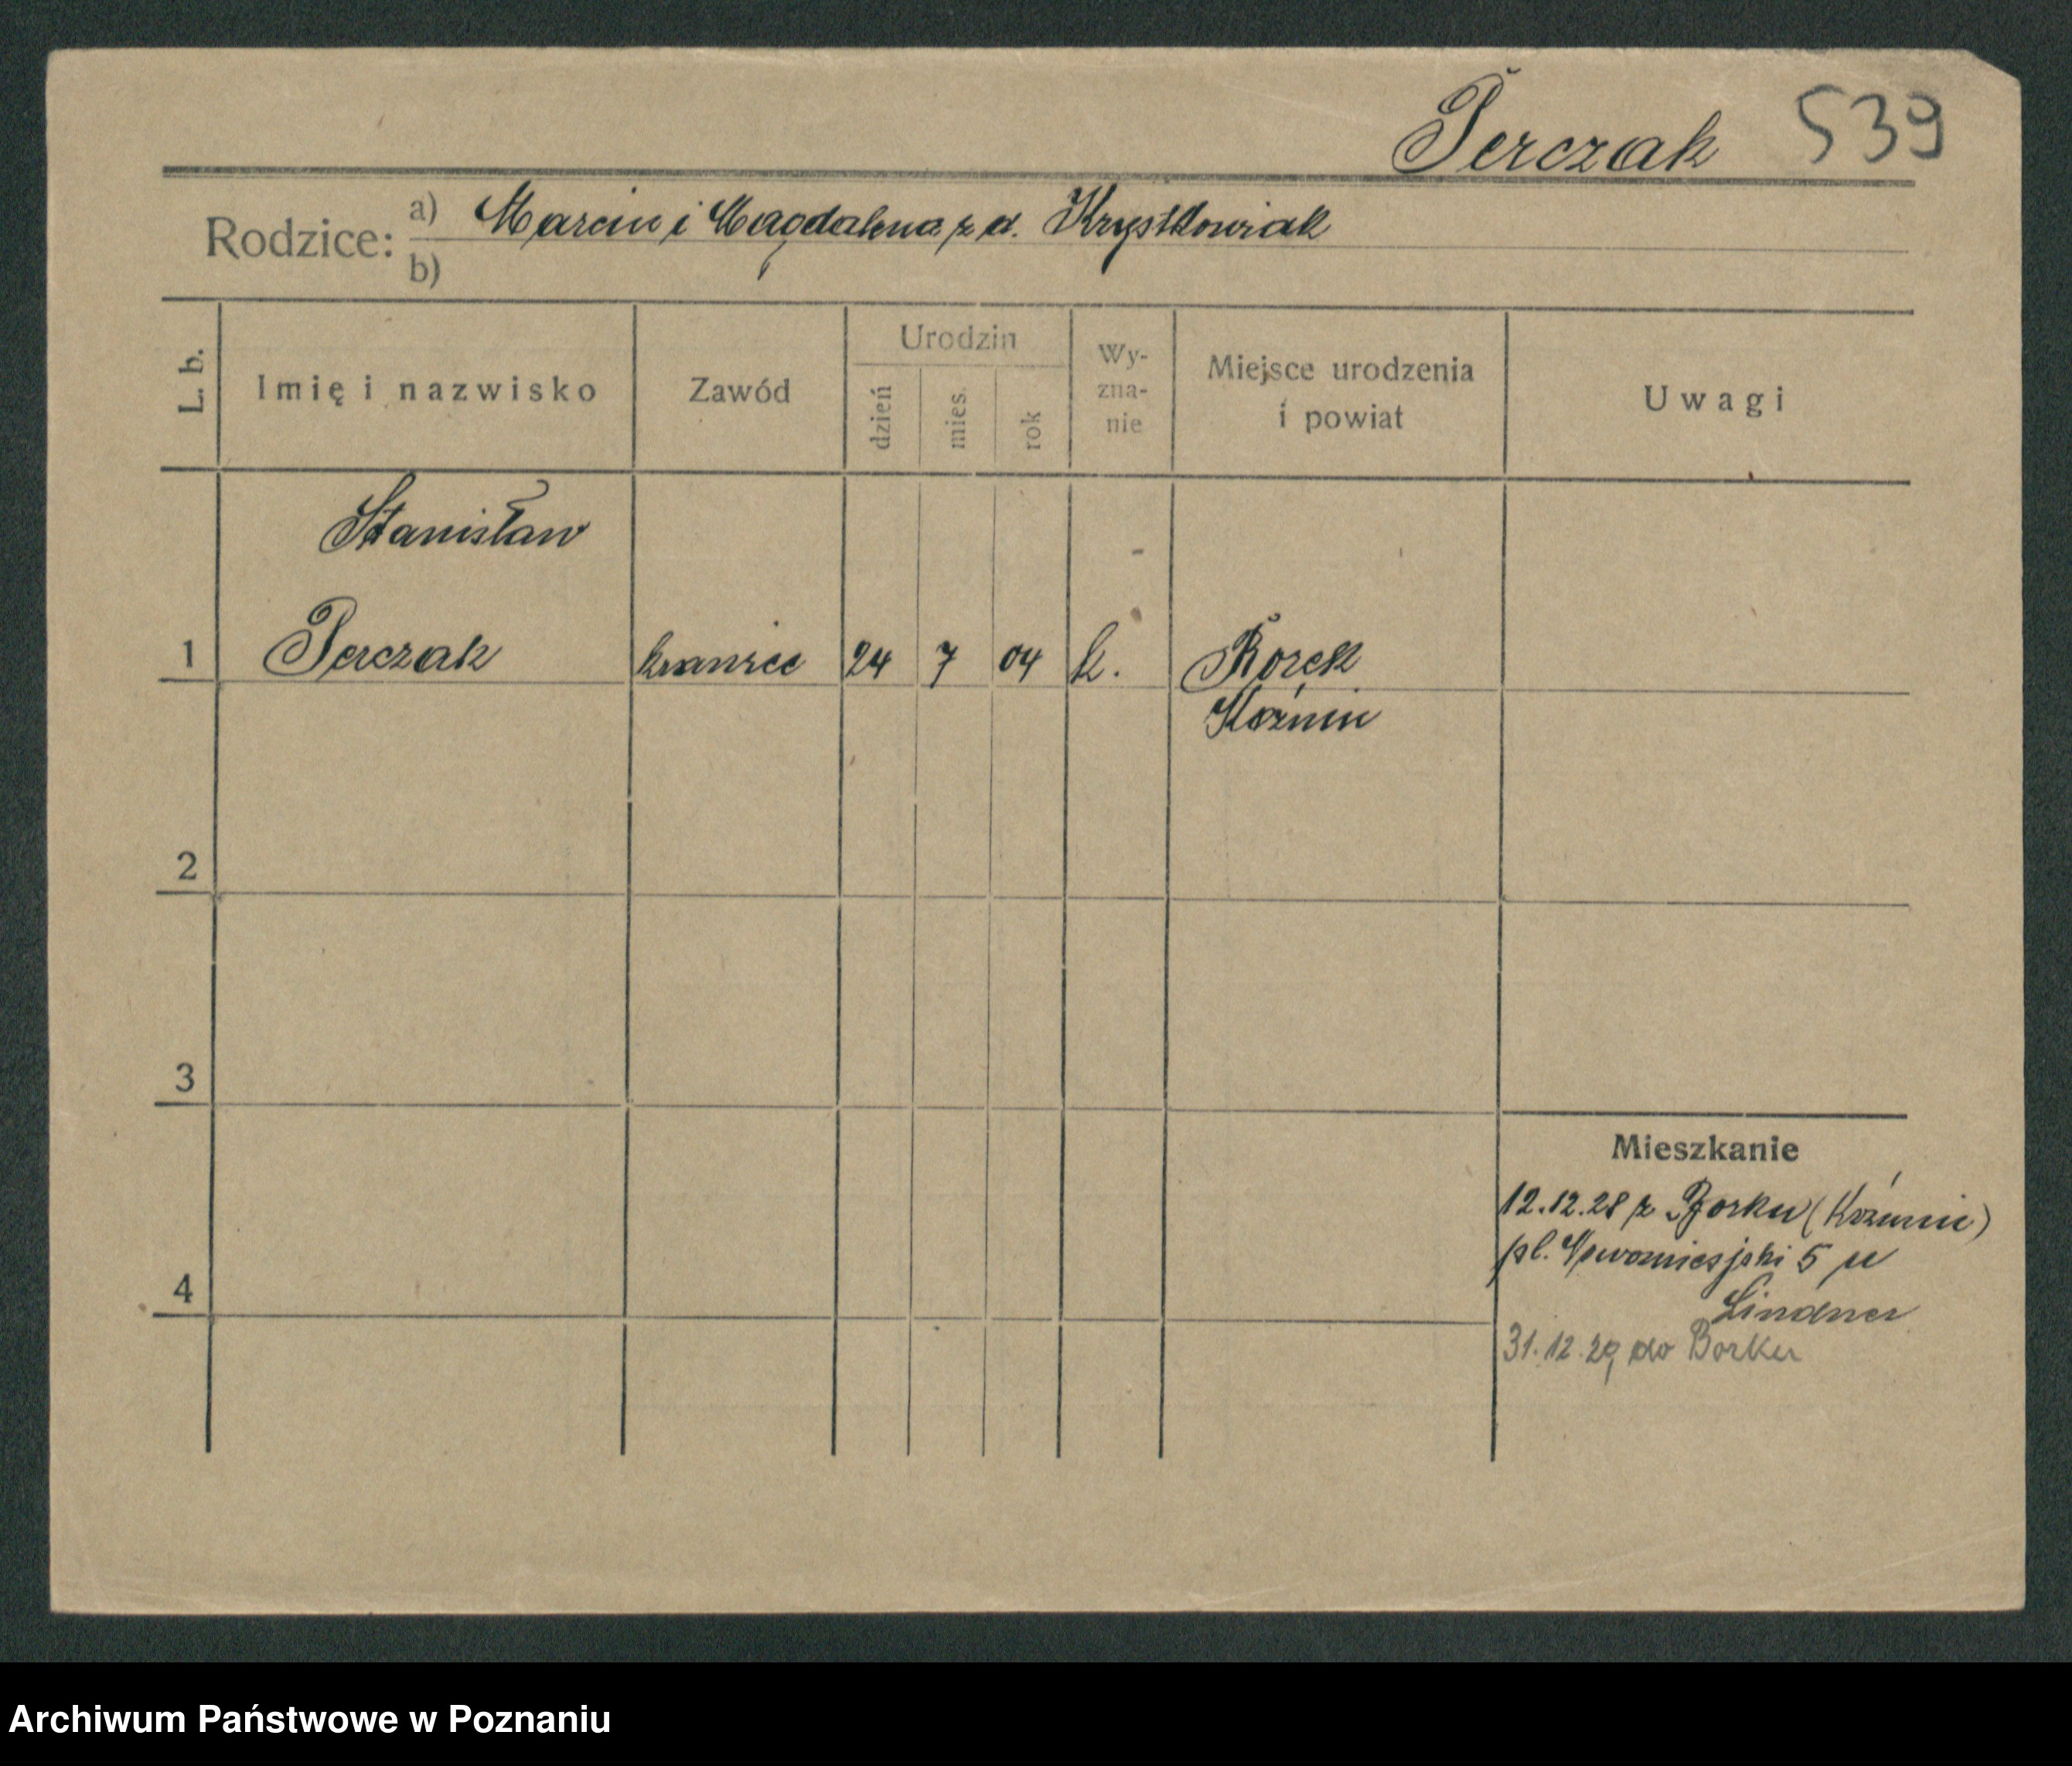 Perczak 539
Rodzice: a) Marcin i Magdalena z d. Krystkowiak
b)
L. b. Imię i nazwisko Zawód Urodzin dzień mies. rok Wy-zna-nie Miejsce urodzenia i powiat Uwagi
Stanisław
1 Perczak krawiec 24 7 04 k. Borek
Koźmin
2
3
Mieszkanie
12.12.28 z Borku (Koźmin)
pl. Nowomiejski 5 u
4
Lindner
31.12.29 do Borku
Archiwum Państwowe w Poznaniu